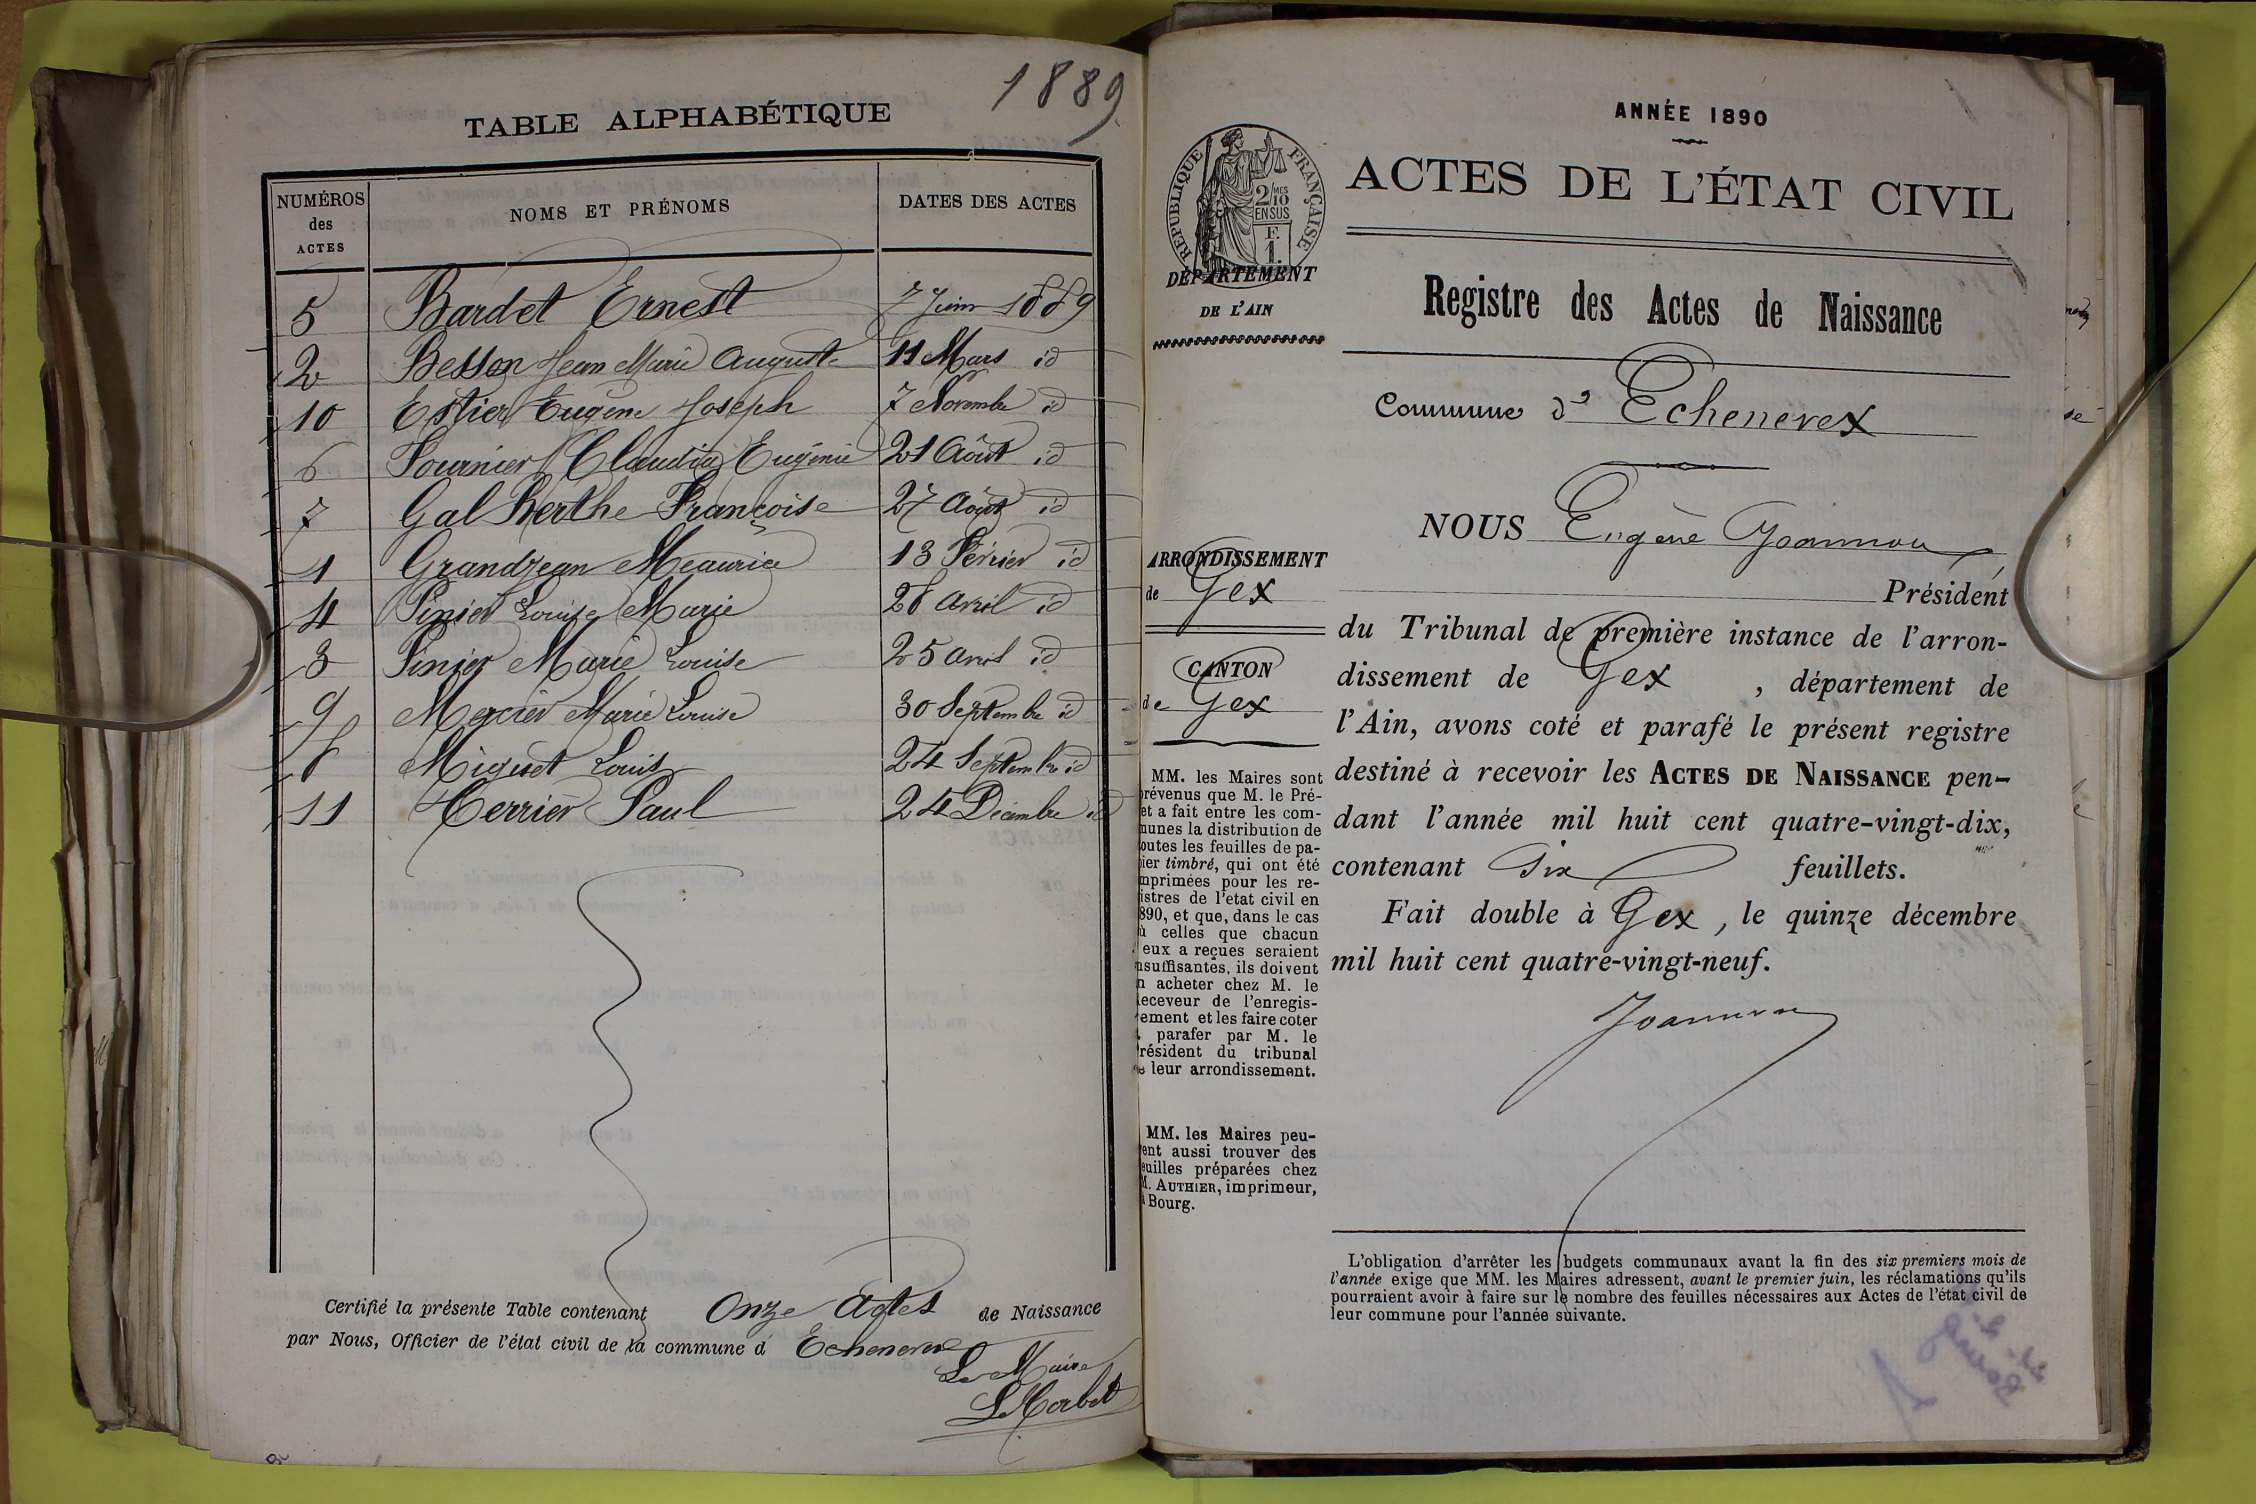 1889
TABLE ALPHABÉTIQUE
NUMÉROS des ACTES NOMS ET PRÉNOMS DATES DES ACTES
5 Bardet Ernest 7 Juin 1889
2 Besson Jean Marie Auguste 11 Mars id
10 Estier Eugène Joseph 7 Novembre id
6 Fournier Claudia Eugénie 21 Août id
7 Gal Berthe Françoise 27 Août id
1 Grandjean Meaurice 13 Février id
4 Louise Marie 28 Avril id
3 Marie Louise 25 Avril id
9 Mercier Marie Louise 30 Septembre id
8 Miquet Louis 24 Septembre id
11 Paul 24 Décembre id
Certifié la présente Table contenant Onze Actes de Naissance
par Nous, Officier de l'état civil de la commune d Echenevex
Le Maire
ANNÉE 1890
RÉPUBLIQUE FRANÇAISE
2/10 MES
EN SUS
F.
1.
ACTES DE L'ÉTAT CIVIL
DÉPARTEMENT
DE L'AIN
Registre des Actes de Naissance
Commune d' Echenevex
NOUS Eugène Joannon
Président
ARRONDISSEMENT
de Gex
CANTON
de Gex
du Tribunal de première instance de l'arron-
dissement de Gex , département de
l'Ain, avons coté et parafé le présent registre
destiné à recevoir les ACTES DE NAISSANCE pen-
dant l'année mil huit cent quatre-vingt-dix,
contenant Six feuillets.
Fait double à Gex , le quinze décembre
mil huit cent quatre-vingt-neuf.
Joannon
MM. les Maires sont
révenus que M. le Pré-
et a fait entre les com-
munes la distribution de
outes les feuilles de pa-
ier timbré, qui ont été
mprimées pour les re-
istres de l'etat civil en
890, et que, dans le cas
ù celles que chacun
eux a reçues seraient
nsuffisantes, ils doivent
n acheter chez M. le
eceveur de l'enregis-
ement et les faire coter
parafer par M. le
résident du tribunal
leur arrondissement.
MM. les Maires peu-
ent aussi trouver des
euilles préparées chez
M. AUTHIER, imprimeur,
à Bourg.
L'obligation d'arrêter les budgets communaux avant la fin des six premiers mois de
l'année exige que MM. les Maires adressent, avant le premier juin, les réclamations qu'ils
pourraient avoir à faire sur le nombre des feuilles nécessaires aux Actes de l'état civil de
leur commune pour l'année suivante.